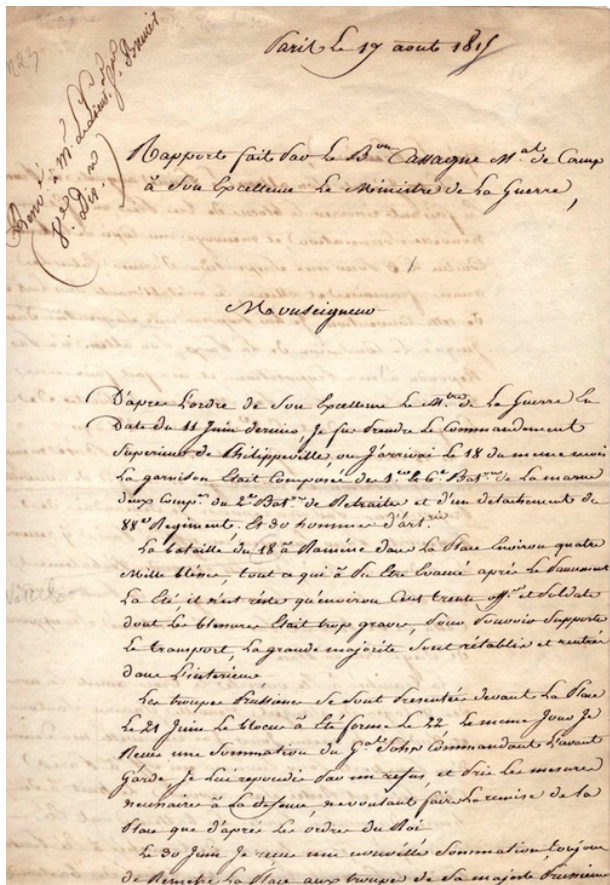 Paris Le 19 aout 1815
Renvoyé à Mr. Le Lieut. Gal Brenier
8e. Don
Rapporte fait Par Le Bon Cassagne Mal de Camp
à Son Excellence Le Ministre de La Guerre,
Monseigneur
D'apres L'ordre de Son Excellence Le Mtre de La Guerre En
Date du 11 Juin dernier, Je fus Prendre Le Commandement
Superieur de Philippeville, ou J'arrivai Le 18 du meme mois
La garnison Etait Composée des 1er et 6e Batons de La marne
deux Compies du 2e Baton de Retraites et d'un detachement du
88e Regiment, Et 30 hommes d'artrie
La bataille du 18 à Raméné dans La Place Environ quatre
Mille blésés, tout ce qui à Pu Etre Evacué après Le Pansement
La Eté, il n'est résté qu'environ Cent trente offrs et Soldats
dont Les blessures Etait trop grave, Pour Pouvoir Supporté
Le transport, La grande majorité Sont rétablis et rentrés
dans L'interieur
Les troupes Prussiennes Se Sont Présentées devant La Place
Le 21 Juin Le blocus à Eté formé Le 22 Le meme Jour Je
Recus une Sommation du Gal Sohr Commandant L'avant
Garde Je Lui repondis Par un refus, et Pris Les mesures
necessaires à La defense, ne voulant faire La remise de La
Place que d'après Les ordres du Roi
Le 30 Juin Je recus une nouvélle Sommation toujours
de Remetre La Place aux troupes de Sa majesté Prussienne